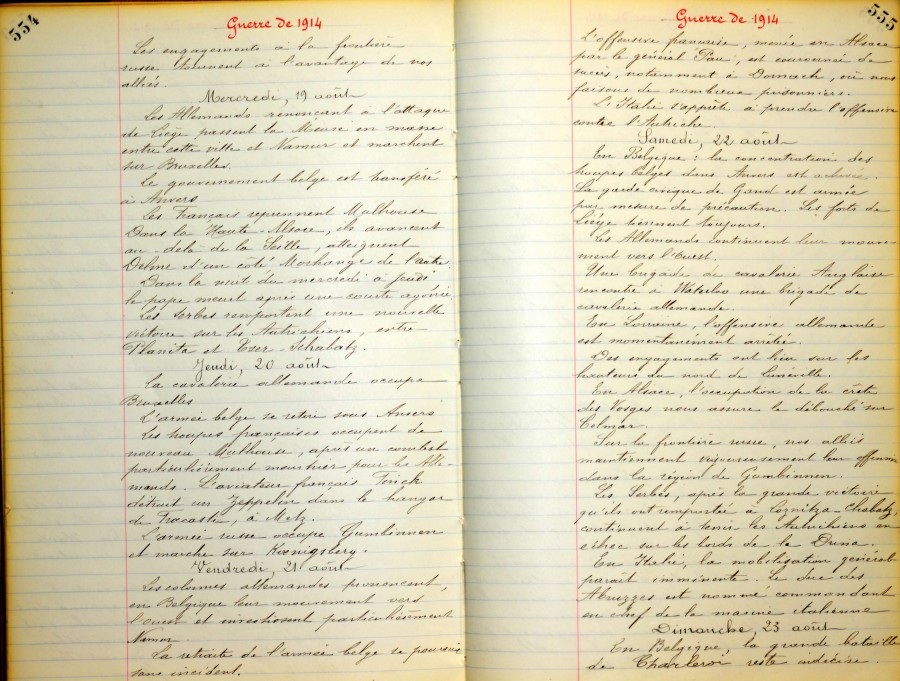 554
Guerre de 1914
Les engagements à la frontière
russe tournent à l'avantage de nos
alliés.
Mercredi, 19 août
Les Allemands renonçant à l'attaque
de Liège passent la Meuse en masse
entre cette ville et Namur et marchent
sur Bruxelles.
Le gouvernement belge est transféré
à Anvers
Les Français reprennent Mulhouse
Dans la Haute-Alsace, ils avancent
au-delà de la Seille, atteignent
Delme d'un côté Morhange de l'autre.
Dans la nuit du mercredi à jeudi
le pape meurt après une courte agonie.
Les Serbes remportent une nouvelle
victoire sur les Autrichiens, entre
et Tser-Schabatz.
Jeudi, 20 août
La cavalerie allemande occupe
Bruxelles
L'armée belge se retire sous Anvers
Les troupes françaises occupent de
nouveau Mulhouse, après un combat
particulièrement meurtrier pour les Alle-
mands. L'aviateur français Finck
détruit un Zeppelin dans le hangar
de Frascati, à Metz.
L'armée russe occupe Gumbinnen
et marche sur Kœnigsberg.
Vendredi, 21 août
Les colonnes allemandes prononcent,
en Belgique leur mouvement vers
l'Ouest et investissent particulièrement
Namur.
La retraite de l'armée belge se poursuit
sans incident.
555
Guerre de 1914
L'offensive française, menée en Alsace
par le général Pau, est couronnée de
succès, notamment à Dornach, où nous
faisons de nombreux prisonniers.
L'Italie s'apprête à prendre l'offensive
contre l'Autriche.
Samedi, 22 août
En Belgique : la concentration des
troupes belges dans Anvers est achevée.
La garde civique de Gand est armée
par mesure de précaution. Les forts de
Liège tiennent toujours.
Les Allemands continuent leur mouve-
ment vers l'Ouest.
Une brigade de cavalerie Anglaise
rencontre à Waterloo une brigade de
cavalerie allemande.
En Lorraine, l'offensive allemande
est momentanément arrêtée.
Des engagements ont lieu sur les
hauteurs du nord de Lunéville.
En Alsace, l'occupation de la crête
des Vosges nous assure le débouché sur
Colmar.
Sur la frontière russe, nos alliés
maintiennent vigoureusement leur offensive
dans la région de Gumbinnen.
Les Serbes, après la grande victoire
qu'ils ont remportée à Loznitza-Chabatz,
continuent à tenir les Autrichiens en
échec sur les bords de la Drina.
En Italie, la mobilisation générale
paraît imminente. Le duc des
Abruzzes est nommé commandant
en chef de la marine italienne
Dimanche, 23 août
En Belgique, la grande bataille
de Charleroi reste indécise.